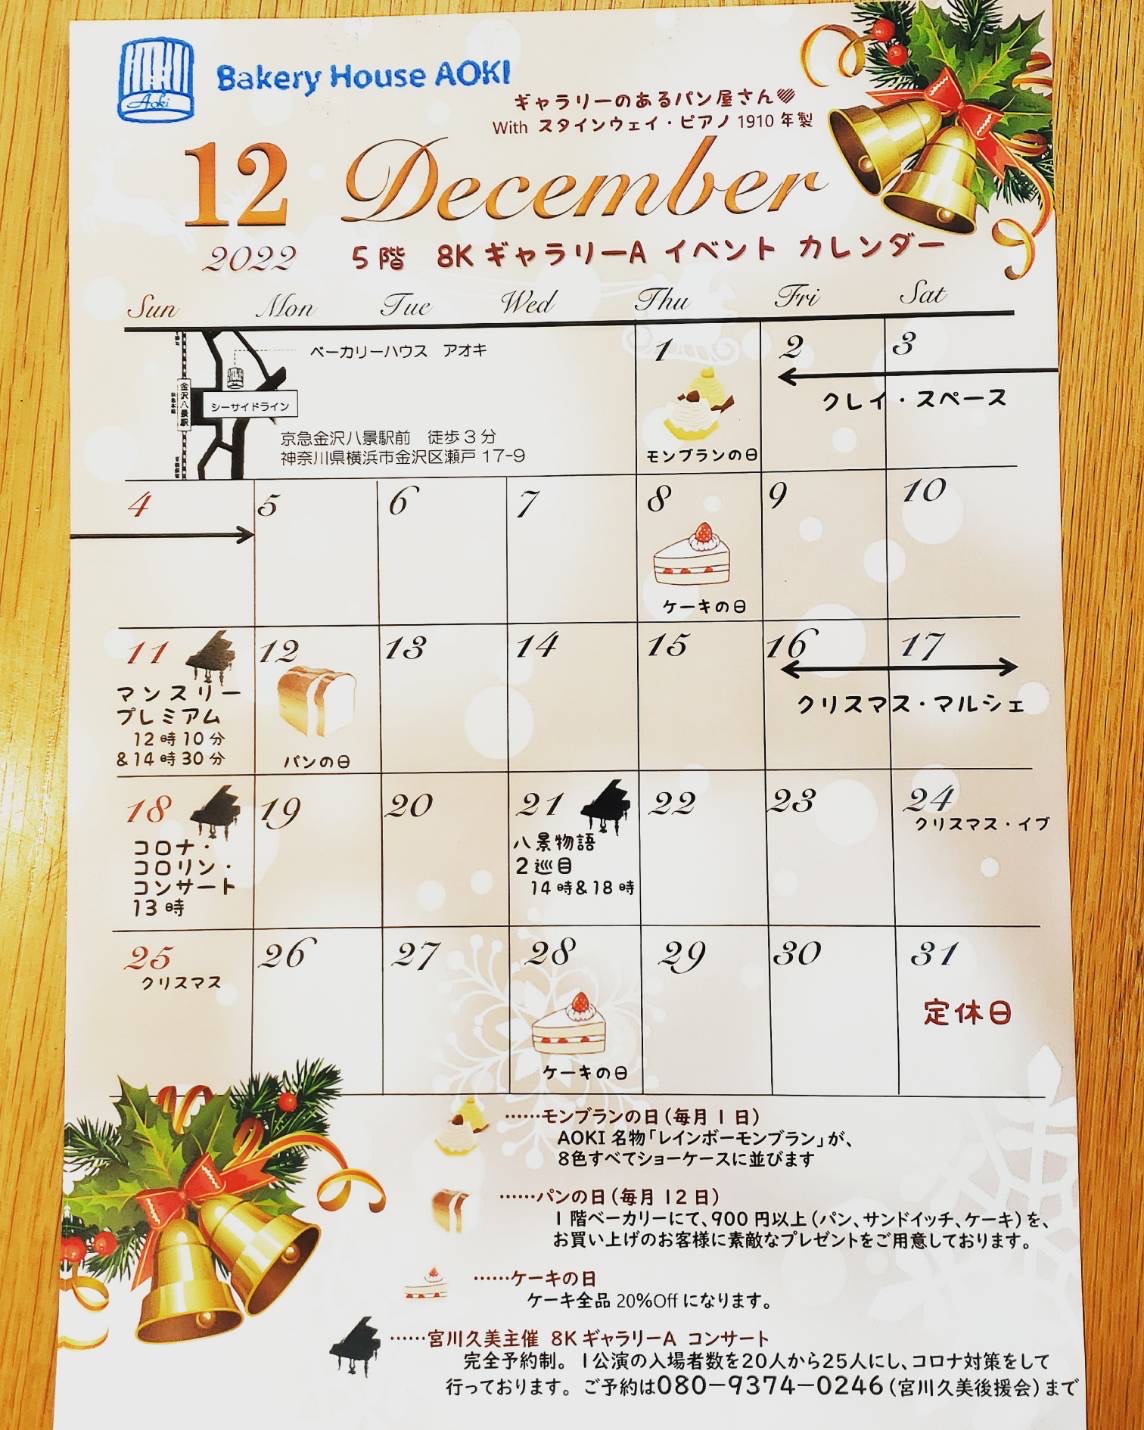 Aoki
Bakery House AOKI
ギャラリーのあるパン屋さん♥
With スタインウェイ・ピアノ 1910 年製
12 December
2022 5階 8Kギャラリー A イベント カレンダー
Sun Mon Tue Wed Thu Fri Sat
ベーカリーハウス アオキ
金沢八景駅
シーサイドライン
京急金沢八景駅前 徒歩3分
神奈川県横浜市金沢区瀬戸 17-9
1 2 3
クレイ・スペース
モンブランの日
4 5 6 7 8 9 10
ケーキの日
11 12 13 14 15 16 17
マンスリー
プレミアム
12時10分
&14時30分
パンの日
クリスマス・マルシェ
18 19 20 21 22 23 24
コロナ・
コロリン・
コンサート
13時
八景物語
2巡目
14時&18時
クリスマス・イブ
25 26 27 28 29 30 31
クリスマス
ケーキの日
定休日
……モンブランの日(毎月1日)
AOKI 名物「レインボーモンブラン」が、
8色すべてショーケースに並びます
……パンの日(毎月12日)
1階ベーカリーにて、900円以上(パン、サンドイッチ、ケーキ)を、
お買い上げのお客様に素敵なプレゼントをご用意しております。
……ケーキの日
ケーキ全品 20%Off になります。
……宮川久美主催 8KギャラリーA コンサート
完全予約制。1公演の入場者数を20人から25人にし、コロナ対策をして
行っております。ご予約は080-9374-0246(宮川久美後援会)まで